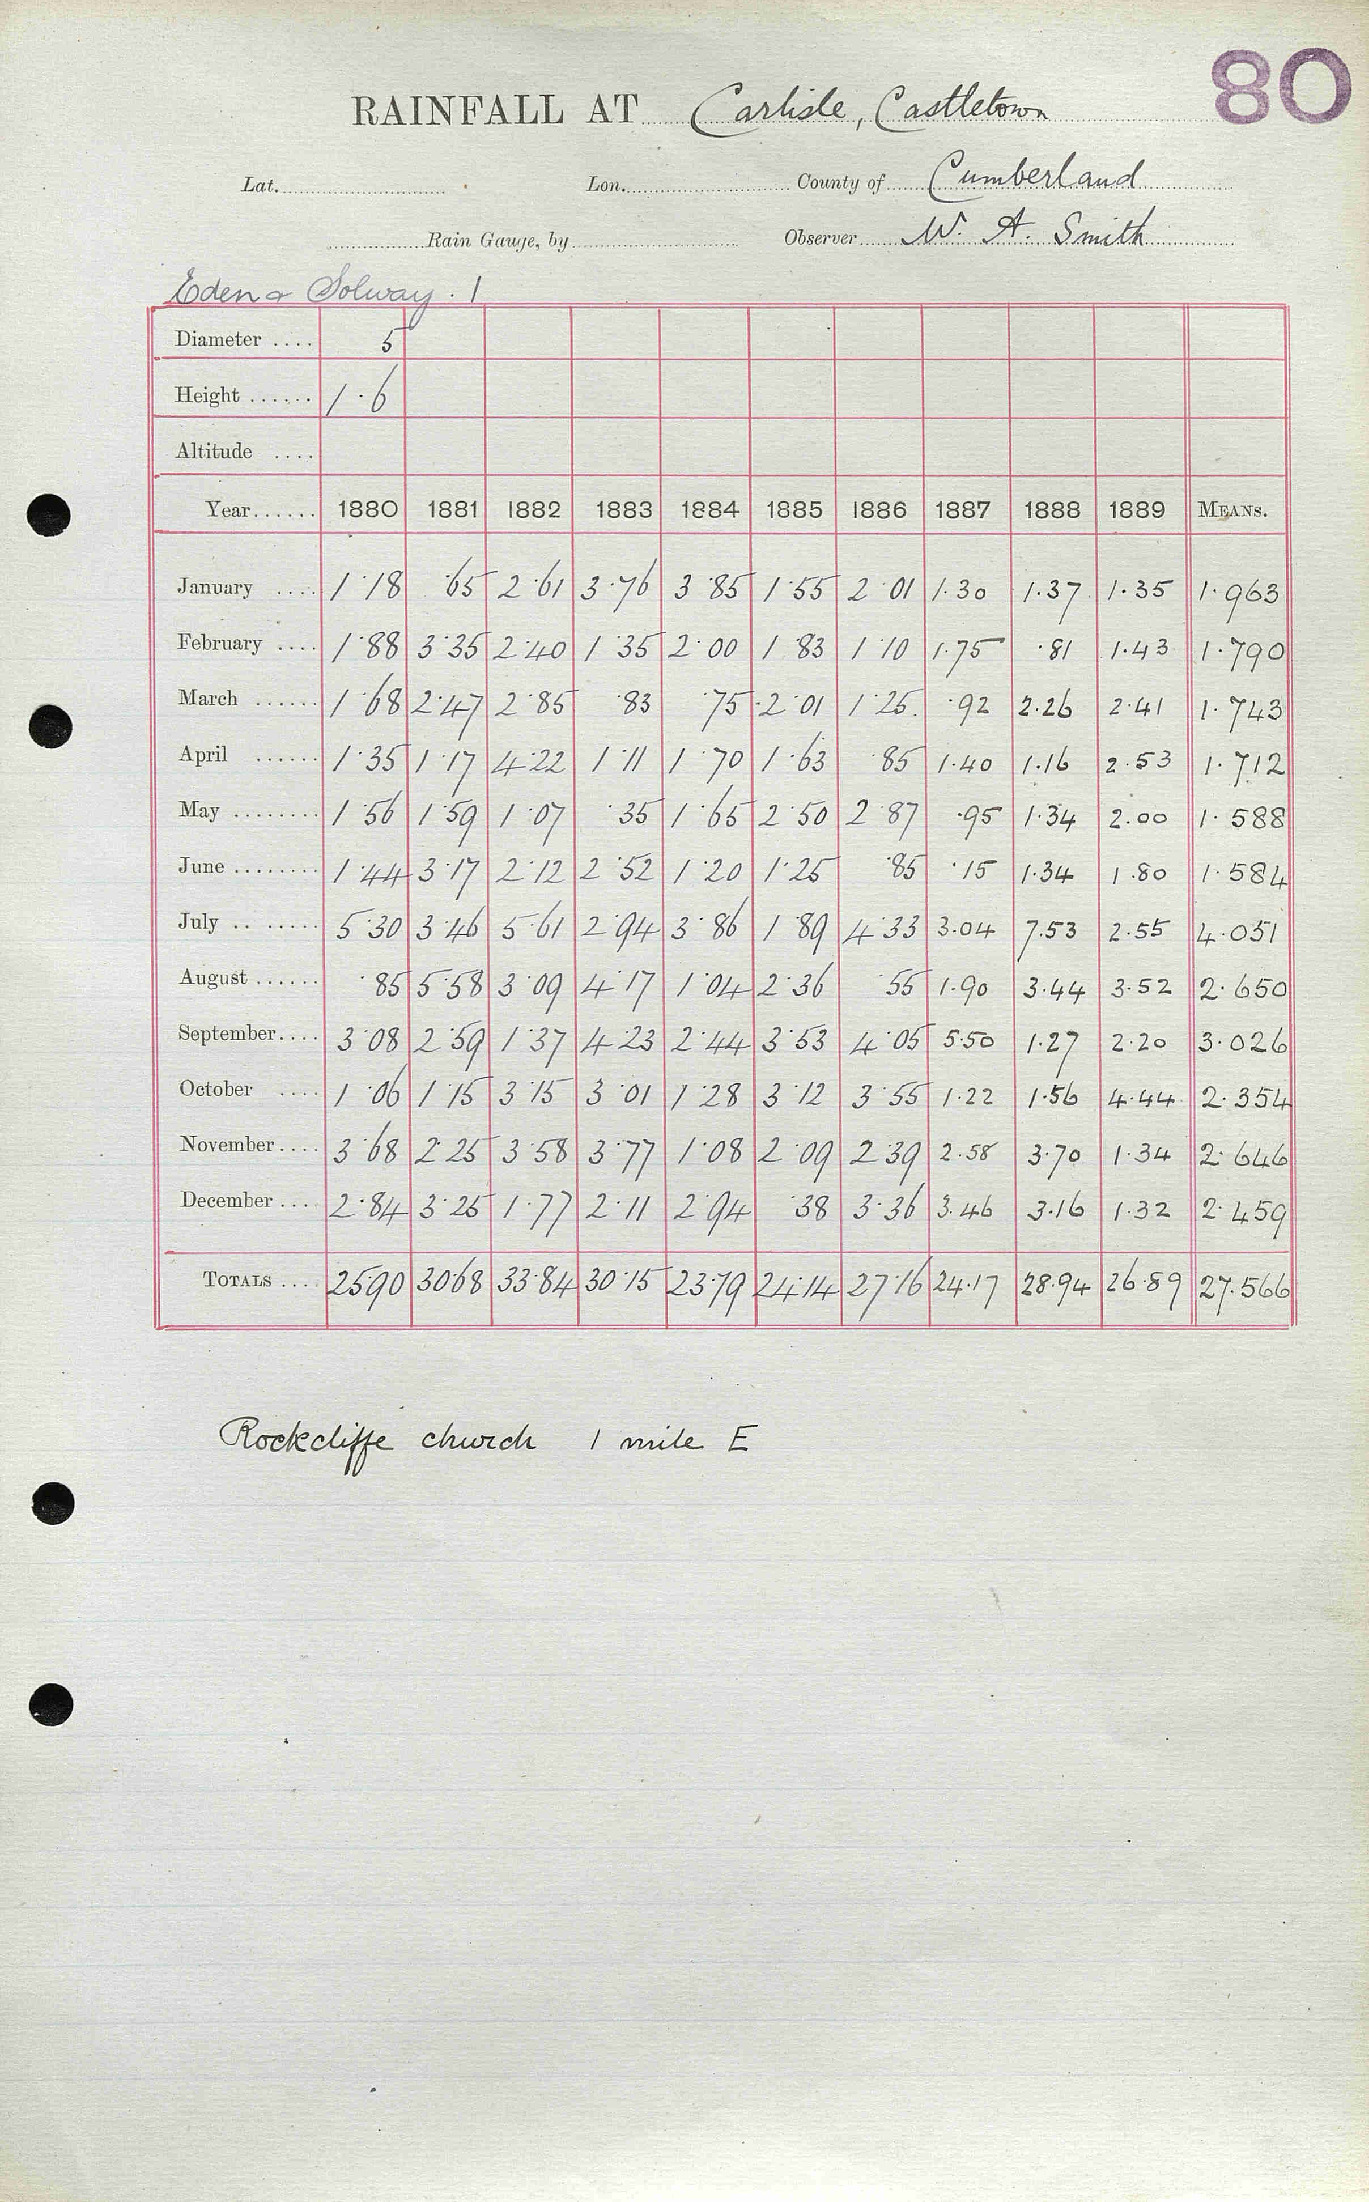 80
RAINFALL AT Carlisle, Castletown
Lat. Lon. County of Cumberland
Rain Gauge, by Observer W. A. Smith
Eden & Solway. 1
Diameter .... 5
Height ...... 1·6
Altitude ....
Year...... 1880 1881 1882 1883 1884 1885 1886 1887 1888 1889 MEANS.
January .... 1·18 ·65 2·61 3·76 3·85 1·55 2·01 1·30 1·37 1·35 1·963
February .... 1·88 3·35 2·40 1·35 2·00 1·83 1·10 1·75 ·81 1·43 1·790
March ...... 1·68 2·47 2·85 ·83 ·75 2·01 1·25 ·92 2·26 2·41 1·743
April ...... 1·35 1·17 4·22 1·11 1·70 1·63 ·85 1·40 1·16 2·53 1·712
May ........ 1·56 1·59 1·07 ·35 1·65 2·50 2·87 ·95 1·34 2·00 1·588
June ........ 1·44 3·17 2·12 2·52 1·20 1·25 ·85 ·15 1·34 1·80 1·584
July .. ...... 5·30 3·46 5·61 2·94 3·86 1·89 4·33 3·04 7·53 2·55 4·051
August ...... ·85 5·58 3·09 4·17 1·04 2·36 ·55 1·90 3·44 3·52 2·650
September.... 3·08 2·59 1·37 4·23 2·44 3·53 4·05 5·50 1·27 2·20 3·026
October .... 1·06 1·15 3·15 3·01 1·28 3·12 3·55 1·22 1·56 4·44 2·354
November.... 3·68 2·25 3·58 3·77 1·08 2·09 2·39 2·58 3·70 1·34 2·646
December.... 2·84 3·25 1·77 2·11 2·94 ·38 3·36 3·46 3·16 1·32 2·459
TOTALS .... 25·90 30·68 33·84 30·15 23·79 24·14 27·16 24·17 28·94 26·89 27·566
Rockcliffe church 1 mile E